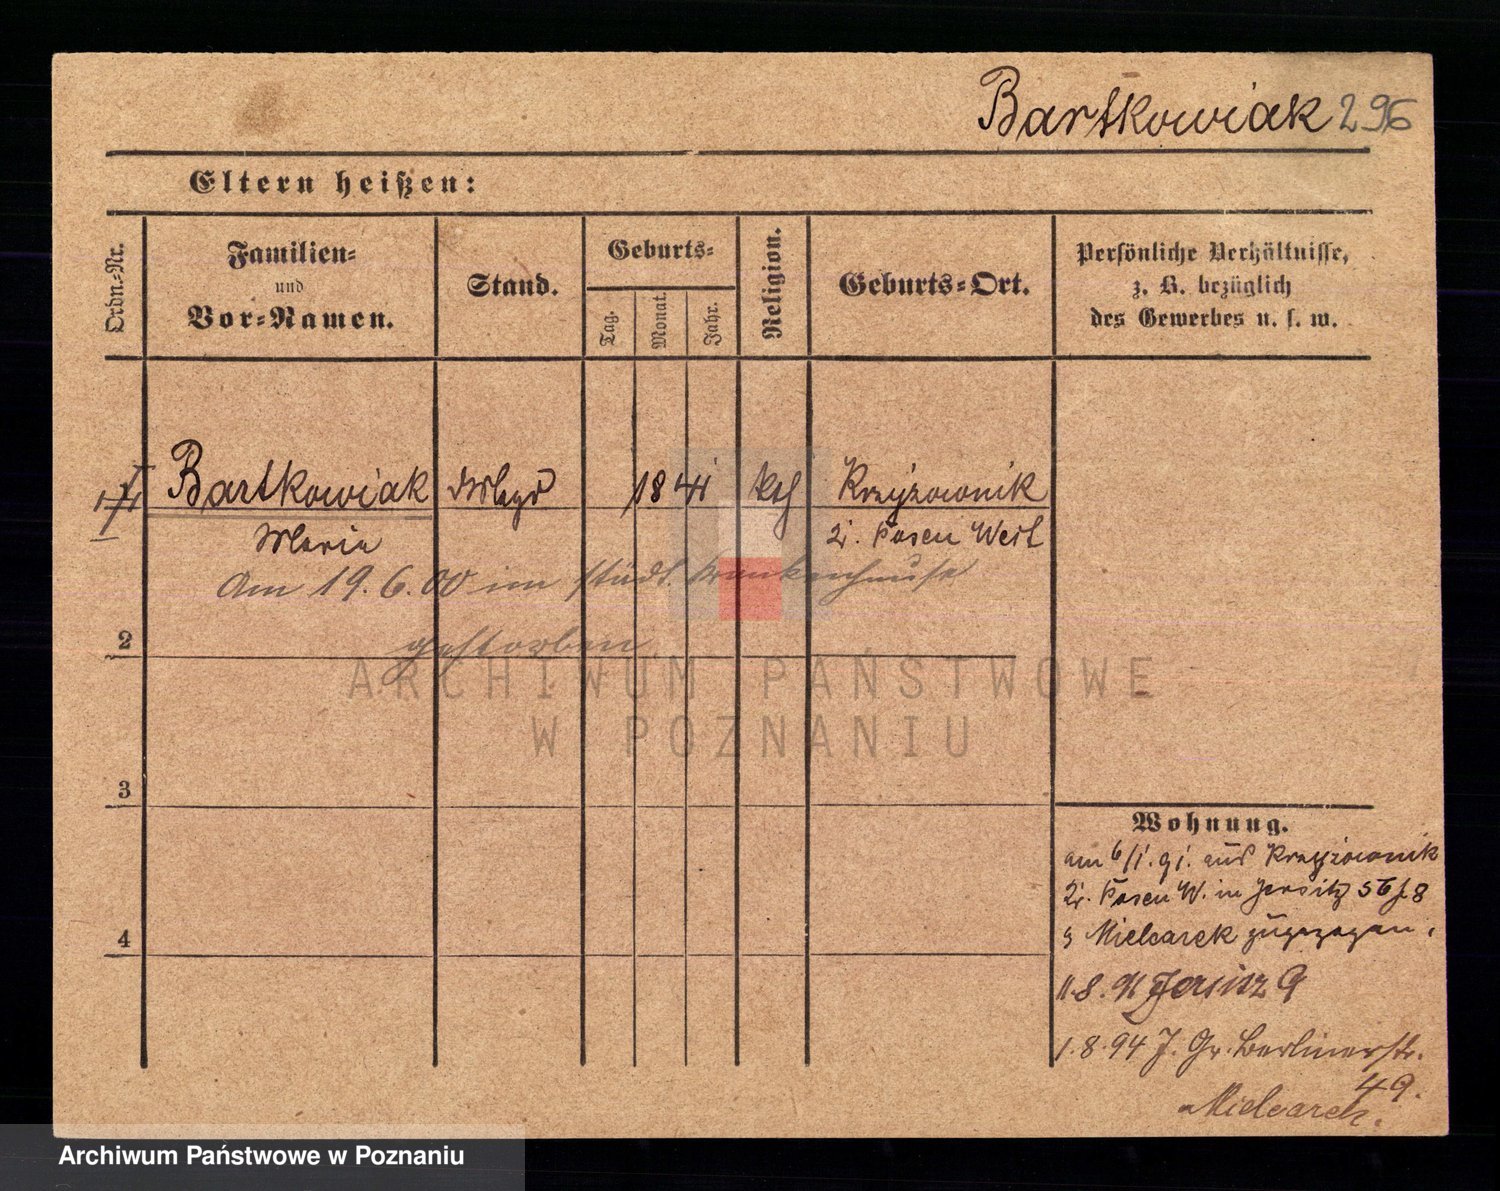 Bartkowiak 296
Eltern heißen:
Ordn.-Nr.
Familien-
und
Vor-Namen.
Stand.
Geburts-
Tag.
Monat.
Jahr.
Religion.
Geburts-Ort.
Persönliche Verhältnisse,
z. B. bezüglich
des Gewerbes u. s. w.
Bartkowiak Magd 1841 kth Krzyżownik
Maria Kr. Posen West
Am 19.6.00 im städt. Krankenhause
gestorben
2
3
4
Wohnung.
am 6/1. 91. aus Krzyżownik
Kr. Posen W. in Jersitz 56 8
Mielcarek zugezogen.
11.8.91 Jersitz 9
1.8.94 J. Gr. Berlinerstr.
49.
Mielcarek.
ARCHIWUM PAŃSTWOWE
W POZNANIU
Archiwum Państwowe w Poznaniu